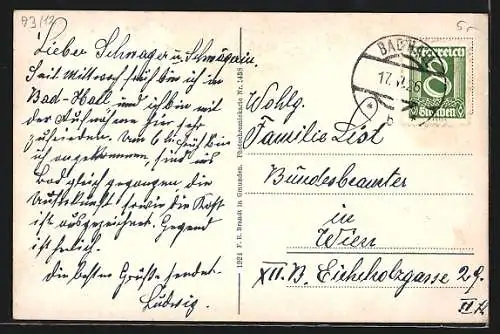 93/19
Lieber Schwager u. Schwägerin
Seit Mittwoch früh bin ich in
Bad-Hall und ich bin mit
der Aufnahme hier sehr
zufrieden. Um 6 h früh bin
ich angekommen, sind ins
Bad gleich gegangen die
Auskunft sowie die Kost
ist ausgezeichnet. Gegend
ist herlich.
die besten Grüße sendet
Ludwig.
1924 F. E. Brandt in Gmunden. Photochromiekarte Nr. 1458
BAD HALL
17. V. 26
b
Österreich
8
Groschen
Wohlg.
Familie List
Bundesbeamter
in
Wien
XII. B. Eichholzgasse 29.